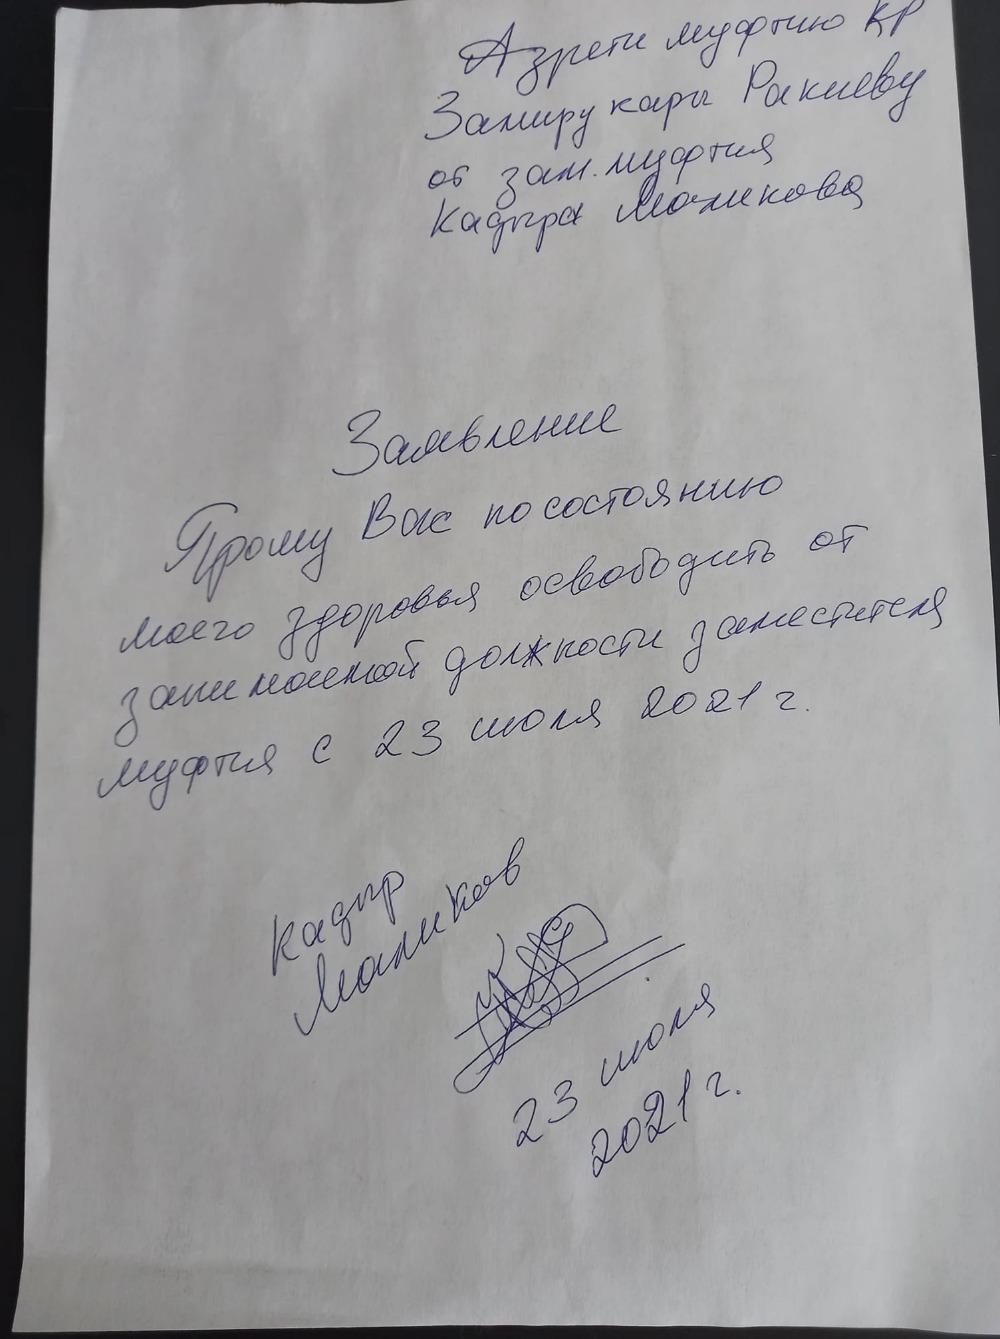 Азрети муфтию КР
Замиру кары Ракиеву
от зам. муфтия
Кадыра Маликова
Заявление
Прошу Вас по состоянию
моего здоровья освободить от
занимаемой должности заместителя
муфтия с 23 июля 2021 г.
Кадыр
Маликов
23 июля
2021 г.